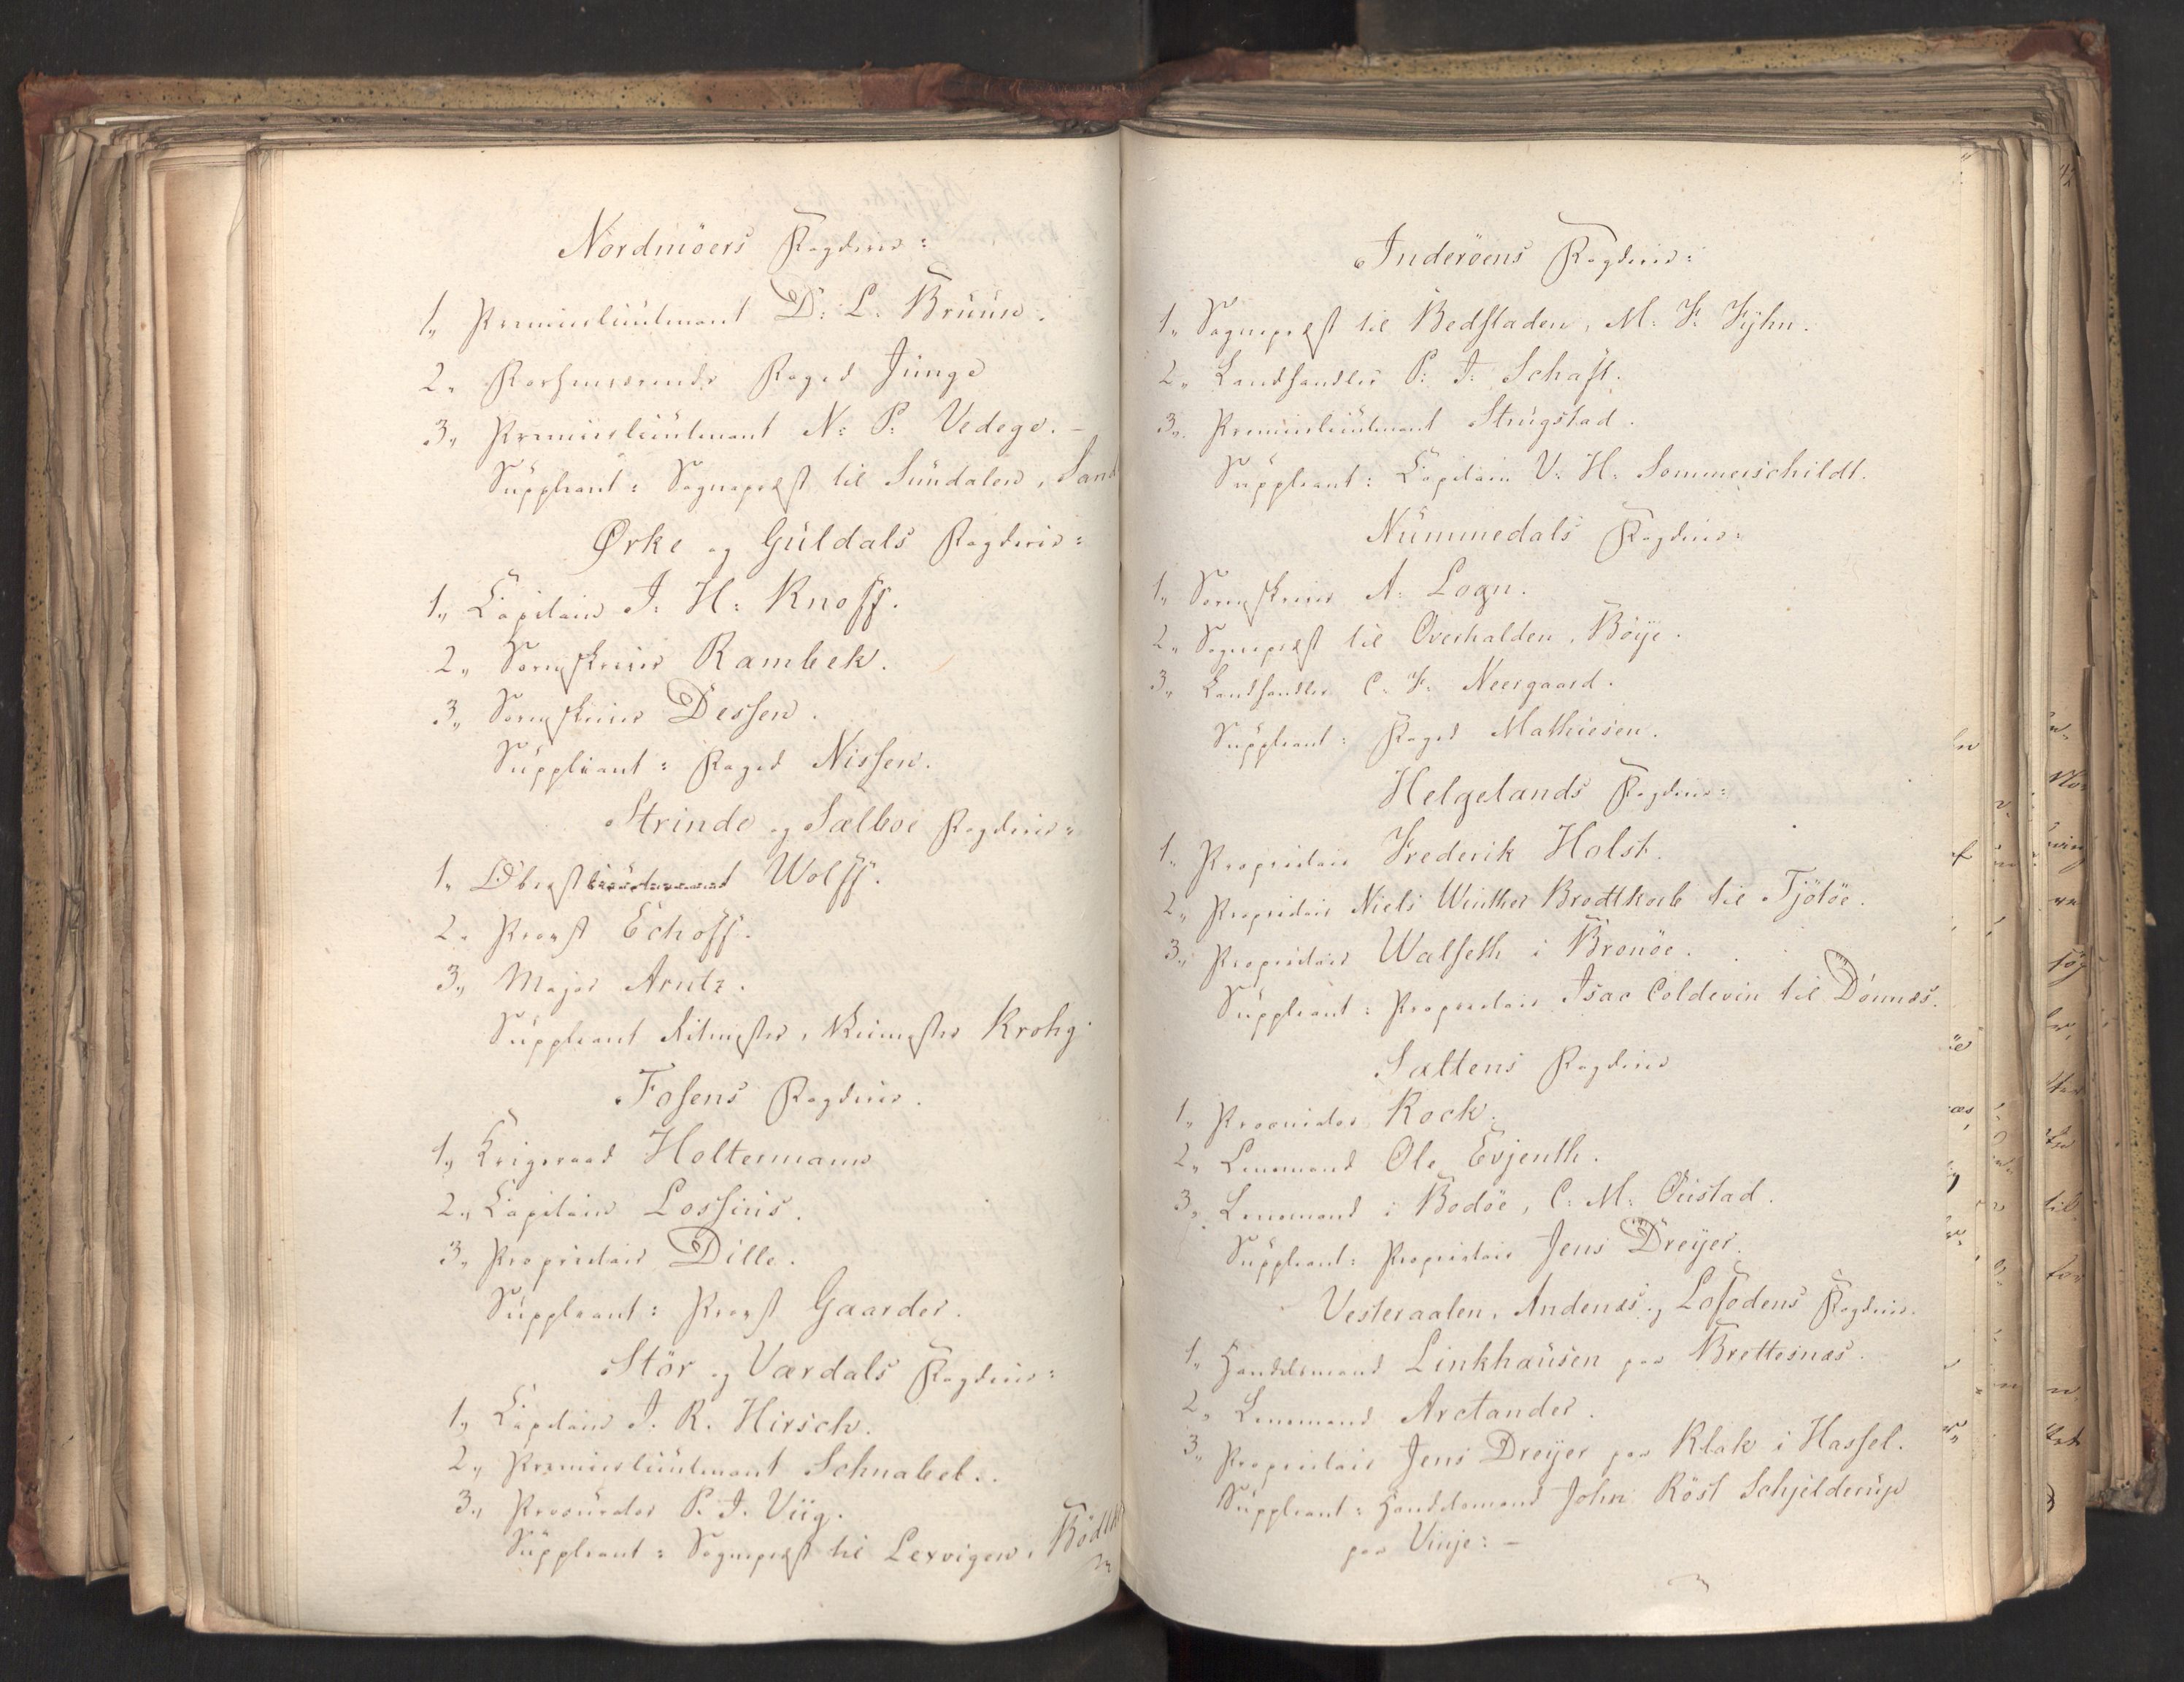 Nordmöers Fogderie:
1,, Premierlieutenant D: L: Bruun.
2,, Forhenværende Foged Junge
3,, Premierlieutenant N: P: Vedege. –
Suppleant: Sognepræst til Sundalen, Sand
Ørke og Guldals Fogderie:
1,, Capitain J: H: Knoff.
2,, Sorenskriver Rambek.
3,, Sorenskriver Dessen.
Suppleant: Foged Nissen.
Strinde og Sælboe Fogderie:
1,, Oberstlieutenant Wolff.
2,, Provst Echoff.
3,, Major Arntz.
Suppleant Ritmester, Krohg.
Fosens Fogderie.
1,, Krigsraad Holtermann
2,, Capitain Lossius.
3,, Proprietair Dille.
Suppleant: Provst Gaarder.
Stör og Værdals Fogderie:
1,, Capitain J. R. Hirsch.
2,, Premierlieutenant Schnabel.
3,, Procurator P. J. Viig.
Suppleant: Sognepræst til Lexvigen,
Inderöens Fogderie:
1,, Sognepræst til Bedstaden, M: F: Fyhn.
2,, Landhandler P: J: Schaft.
3,, Premierlieutenant Strugstad.
Suppleant: Capitain V: H: Sommerschildt.
Nummedals Fogderie:
1,, Sorenskriver A: Logn.
2,, Sognepræst til Overhalden, Böye.
3,, Landhandler C: F: Neergaard.
Suppleant: Foged Mathiesen.
Helgelands Fogderie:
1,, Proprietair Frederik Holst.
2,, Proprietair Niels Winther Brodtkorb til Tjötöe.
3,, Proprietair Walseth i Bronöe.
Suppleant: Proprietair Isac Coldevin til Dönnæs.
Saltens Fogderie
1,, Procurator Kock.
2,, Lensmand Ole Evjenth.
3,, Lensmand i Bodöe, C: M: Öüstad.
Suppleant: Proprietair Jens Dreyer.
Vesteraalen, Andenæs og Lofodens Fogderie.
1,, Handelsmand Linkhausen paa Brettesnæs.
2,, Lensmand Arctander.
3,, Proprietair Jens Dreyer paa Klak i Hassel.
Suppleant: Handelsmand John Röst Schjelderup
paa Vinje: –